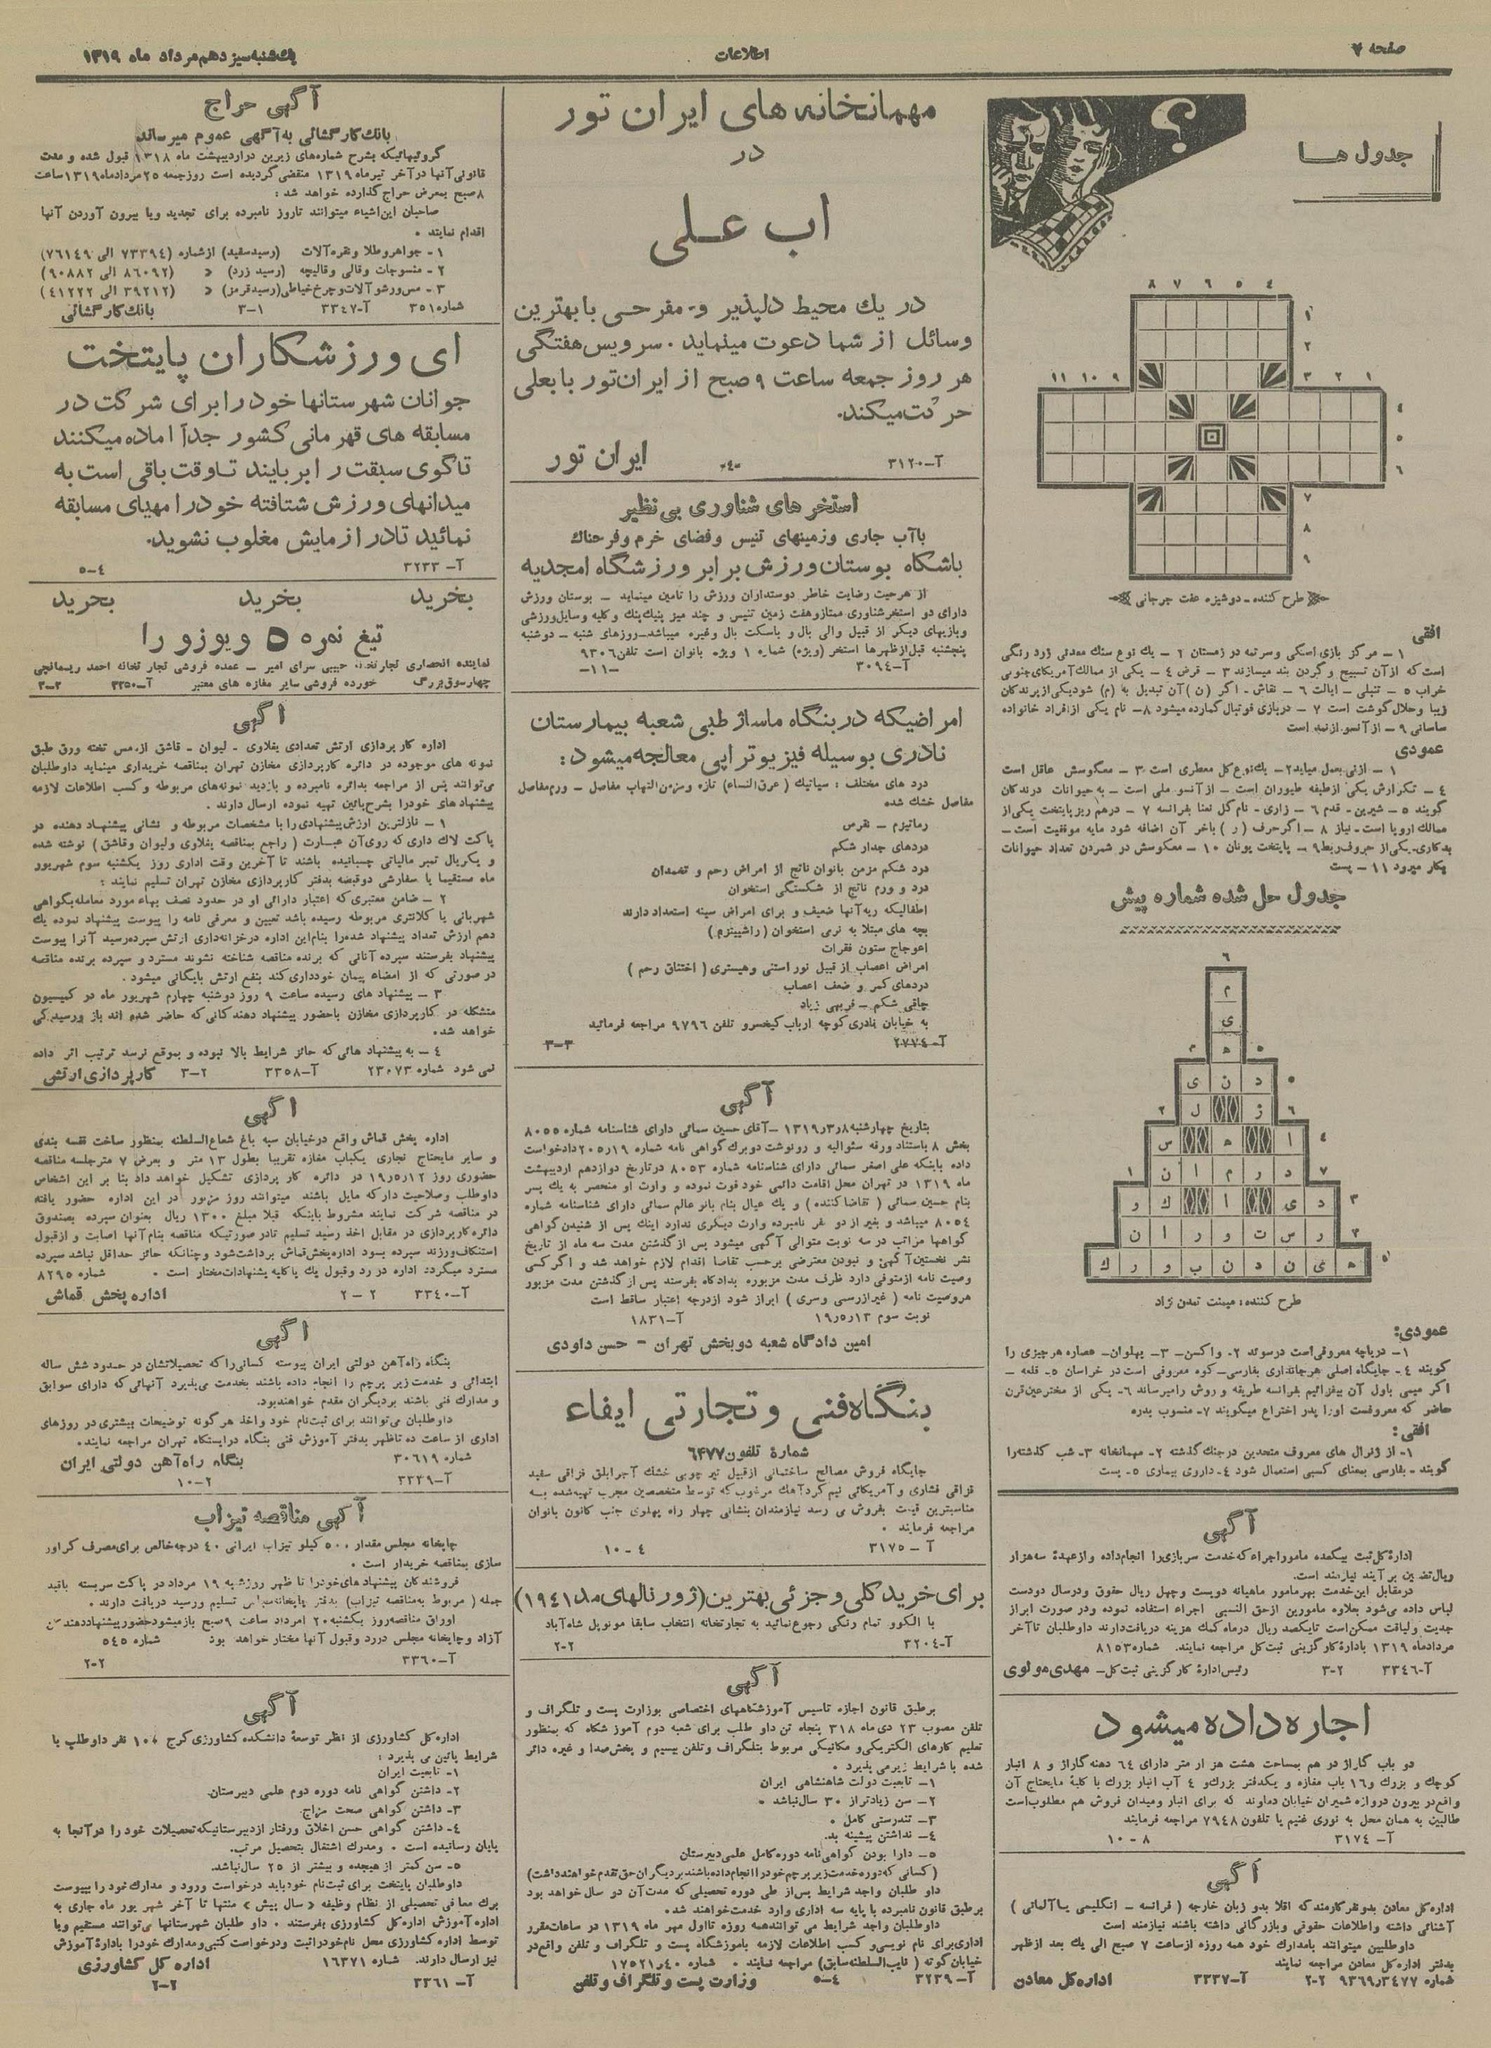 صفحه ۷
اطلاعات
یکشنبه سیزدهم مرداد ماه ۱۳۱۹
جدول ها
۴ ۵ ۶ ۷ ۸
۱
۲
۱ ۲ ۳
۹ ۱۰ ۱۱
۴
۵
۶
۷
۸
۹
طرح کننده - دوشیزه عفت جرجانی
افقی
۱ - مرکز بازی اسکی وسرتمه در زمستان ۲ - یك نوع سنك معدنی زرد رنگی
است که از آن تسبیح و گردن بند میسازند ۳ - قرض ٤ - یکی از ممالك آمریکای جنوبی
خراب ۵ - تنبلی - ایالت ٦ - نقاش - اگر (ن) آن تبدیل به (م) شود یکی از پرندگان
زیبا وحلال گوشت است ۷ - دربازی فوتبال گمارده میشود ۸ - نام یکی از افراد خانواده
ساسانی ۹ - از آنسو ازتنبه است
عمودی
۱ - ازنی بعمل میاید ۲ - یکنوع گل معطری است ۳ - معکوسش عاقل است
٤ - تکرارش یکی ازطبقه طیوران است - از آنسو ملی است - به حیوانات درندگان
گویند ۵ - شیرین - قدم ٦ - زاری - نام گل نعنا بفرانسه ۷ - درهم ریز پایتخت یکی از
ممالك اروپا است - نیاز ۸ - اگر حرف (ر) باخر آن اضافه شود مایه موفقیت است -
بدکاری - یکی از حروف ربط ۹ - پایتخت یونان ۱۰ - معکوسش در شمردن تعداد حیوانات
بکار میرود ۱۱ - پست
جدول حل شده شماره پیش
۶
م
ی
ه
د ن ی
ژ ل
ا ه س
د ر م ا ن
د ی ا ك و
ر س ت و ر ا ن
ه ی ن د ن ب و ر ك
طرح کننده: میمنت تمدن نژاد
عمودی:
۱ - دریاچه معروفی است درسوئد ۲ - واکسن - ۳ - پهلوان - عصاره هرچیزی را
گویند ٤ - جایگاه اصلی هرجانداری بفارسی - کوه معروفی است در خراسان ۵ - قلعه -
اکر میمی باول آن بیفزائیم بفرانسه طریقه و روش را میرساند ٦ - یکی از مخترعین قرن
حاضر که معروفست اورا پدر اختراع میگویند ۷ - منسوب بدره
افقی:
۱ - از ژنرال های معروف متحدین درجنك گذشته ۲ - مهمانخانه ۳ - شب گذشته را
گویند - بفارسی بمعنای کسبی استعمال شود ٤ - داروی بیماری ۵ - پست
آگهی
اداره کل ثبت بیکعده مامور اجراء که خدمت سربازی را انجام داده و از عهدهٔ سه هزار
ریال تضمین برآیند نیازمند است.
درمقابل این خدمت بهر مامور ماهیانه دویست وچهل ریال حقوق ودرسال دودست
لباس داده می شود بعلاوه مامورین ازحق النسبی اجراء استفاده نموده ودر صورت ابراز
جدیت ولیاقت ممکن است تایکصد ریال درماه کمك هزینه دریافت دارند داوطلبان تا آخر
مردادماه ۱۳۱۹ باداره کارگزینی ثبت کل مراجعه نمایند. شماره ۸۱۵۳
آ-۳۳۴۶ ۲-۳ رئیس ادارهٔ کارگزینی ثبت کل - مهدی مولوی
اجاره داده میشود
دو باب گاراژ در هم بمساحت هشت هزار متر دارای ٦٤ دهنه گاراژ و ۸ انبار
کوچك و بزرك و ۱٦ باب مغازه و یکدفتر بزرك و ٤ آب انبار بزرك با کلیهٔ مایحتاج آن
واقع در بیرون دروازه شمیران خیابان دماوند که برای انبار ومیدان فروش هم مطلوب است
طالبین به همان محل به نوری غنیم یا تلفون ۷۹۴۸ مراجعه فرمایند
آ - ۳۱۷۴ ۸ - ۱۰
آگهی
اداره کل معادن بدو نفر کارمند که اقلا بدو زبان خارجه (فرانسه - انگلیسی یا آلمانی)
آشنائی داشته واطلاعات حقوقی وبازرگانی داشته باشند نیازمند است
داوطلبین میتوانند بامدارك خود همه روزه ازساعت ۷ صبح الی یك بعد از ظهر
بدفتر اداره کل معادن مراجعه نمایند
شماره ۹۳۶۹٫۳۴۷۷ ۲-۲ آ-۳۳۳۷ اداره کل معادن
مهمانخانه های ایران تور
در
اب علی
در یك محیط دلپذیر و مفرحی با بهترین
وسائل از شما دعوت مینماید. سرویس هفتگی
هر روز جمعه ساعت ۹ صبح از ایران تور بابعلی
حرکت میکند.
آ-۳۱۲۰ -٤- ایران تور
استخر های شناوری بی نظیر
باآب جاری وزمینهای تنیس وفضای خرم وفرحناك
باشگاه بوستان ورزش برابر ورزشگاه امجدیه
از هرحیث رضایت خاطر دوستداران ورزش را تامین مینماید - بوستان ورزش
دارای دو استخر شناوری ممتاز وهفت زمین تنیس و چند میز پنیك پنك و کلیه وسایل ورزشی
وبازیهای دیگر از قبیل والی بال و باسکت بال وغیره میباشد - روزهای شنبه - دوشنبه
پنجشنبه قبل از ظهرها استخر (ویژه) شماره ۱ ویژه بانوان است تلفن ۹۳۰۶
آ-۳۰۹۴ -۱۱-
امراضیکه در بنگاه ماساژ طبی شعبه بیمارستان
نادری بوسیله فیزیوتراپی معالجه میشود:
درد های مختلف: سیاتیك (عرق النساء) تازه ومزمن التهاب مفاصل - ورم مفاصل
مفاصل خشك شده
رماتیزم - نقرس
دردهای جدار شکم
درد شکم مزمن بانوان ناتج از امراض رحم و تخمدان
درد و ورم ناتج از شکستگی استخوان
اطفالیکه ریه آنها ضعیف و برای امراض سینه استعداد دارند
بچه های مبتلا به نرمی استخوان (راشیتیزم)
اعوجاج ستون فقرات
امراض اعصاب از قبیل نوراستنی وهیستری (اختناق رحم)
دردهای کمر و ضعف اعصاب
چاقی شکم - فربهی زیاد
به خیابان نادری کوچه ارباب کیخسرو تلفن ۹۷۹۶ مراجعه فرمائید
آ-۲۷۷۴ ۳-۳
آگهی
بتاریخ چهارشنبه ۱۳۱۹٫۳٫۸ - آقای حسین سمائی دارای شناسنامه شماره ۸۰۵۵
بخش ۸ باستناد ورقه سئوالیه و رونوشت دوبرك گواهی نامه شماره ۲۰۵٫۱۹ دادخواست
داده باینکه علی اصغر سمائی دارای شناسنامه شماره ۸۰۵۳ درتاریخ دوازدهم اردیبهشت
ماه ۱۳۱۹ در تهران محل اقامت دائمی خود فوت نموده و وارث او منحصر به یك پسر
بنام حسین سمائی (تقاضا کننده) و یك عیال بنام بانو عالم سمائی دارای شناسنامه شماره
۸۰۵۴ میباشد و بغیر از دو نفر نامبرده وارث دیگری ندارد اینك پس از شنیدن گواهی
گواهها مراتب در سه نوبت متوالی آگهی میشود پس از گذشتن مدت سه ماه از تاریخ
نشر نخستین آگهی و نبودن معترضی برحسب تقاضا اقدام لازم خواهد شد و اگر کسی
وصیت نامه ازمتوفی دارد ظرف مدت مزبوره بدادگاه بفرستد پس از گذشتن مدت مزبور
هروصیت نامه (غیر ازرسمی وسری) ابراز شود ازدرجه اعتبار ساقط است
نوبت سوم ۱۹٫۵٫۱۳ آ-۱۸۳۱
امین دادگاه شعبه دو بخش تهران - حسن داودی
بنگاه فنی و تجارتی ایفاء
شمارهٔ تلفون ۶۴۷۷
جایگاه فروش مصالح ساختمانی ازقبیل تیر چوبی خشك آجر ابلق قزاقی سفید
قزاقی فشاری و آمریکائی نیم گرد آهك مرغوب که توسط متخصصین مجرب تهیه شده بـه
مناسبترین قیمت بفروش می رسد نیازمندان بنشانی چهار راه پهلوی جنب کانون بانوان
مراجعه فرمایند .
آ - ۳۱۷۵ ۴ - ۱۰
برای خرید کلی و جزئی بهترین (ژورنالهای مد ۱۹۴۱)
با الکوو تمام رنگی رجوع نمائید به تجارتخانه انتخاب سابقا مونوپل شاه آباد
آ-۳۲۰۴ ۲-۲
آگهی
برطبق قانون اجازه تاسیس آموزشگاههای اختصاصی بوزارت پست و تلگراف و
تلفن مصوب ۲۳ دی ماه ۳۱۸ پنجاه تن داو طلب برای شعبه دوم آموز شگاه که بمنظور
تعلیم کارهای الکتریکی و مکانیکی مربوط بتلگراف وتلفن بیسیم و پخش صدا و غیره دائر
شده با شرایط زیر می پذیرد .
۱ - تابعیت دولت شاهنشاهی ایران
۲ - سن زیادتر از ۳۰ سال نباشد .
۳ - تندرستی کامل .
٤ - نداشتن پیشینه بد.
۵ - دارا بودن گواهی نامه دوره کامل علمی دبیرستان
(کسانی که دوره خدمت زیر پرچم خود را انجام داده باشند بردیگران حق تقدم خواهند داشت)
داو طلبان واجد شرایط پس از طی دوره تحصیلی که مدت آن دو سال خواهد بود
برطبق قانون نامبرده با پایه سه اداری وارد خدمت خواهند شد.
داوطلبان واجد شرایط می توانند همه روزه تااول مهر ماه ۱۳۱۹ در ساعات مقرر
اداری برای نام نویسی و کسب اطلاعات لازمه باموزشگاه پست و تلگراف و تلفن واقع در
خیابان کوته (نایب السلطنه سابق) مراجعه نمایند . شماره ۱۷۵۲۱٫۴۰
آ-۳۲۳۹ ۴-۵ وزارت پست و تلگراف و تلفن
آگهی حراج
بانك کارگشائی به آگهی عموم میرساند
گروئیهائیکه بشرح شماره های زیرین در اردیبهشت ماه ۱۳۱۸ قبول شده و مدت
قانونی آنها در آخر تیرماه ۱۳۱۹ منقضی گردیده است روز جمعه ۲۵ مرداد ماه ۱۳۱۹ ساعت
۸ صبح بمعرض حراج گذارده خواهد شد:
صاحبان این اشیاء میتوانند تاروز نامبرده برای تجدید ویا بیرون آوردن آنها
اقدام نمایند .
۱ - جواهر وطلا ونقره آلات (رسید سفید) از شماره (۷۳۳۹۴ الی ۷۶۱۴۹)
۲ - منسوجات وقالی وقالیچه (رسید زرد) » (۸۶۰۹۲ الی ۹۰۸۸۲)
۳ - مس ورشو آلات و چرخ خیاطی (رسید قرمز) » (۳۹۲۱۲ الی ۴۱۲۲۲)
شماره ۳۵۱ آ-۳۳۴۷ ۱-۳ بانك کارگشائی
ای ورزشکاران پایتخت
جوانان شهرستانها خود را برای شرکت در
مسابقه های قهرمانی کشور جداً اماده میکنند
تا گوی سبقت را بر بایند تا وقت باقی است به
میدانهای ورزش شتافته خود را مهیای مسابقه
نمائید تا در ازمایش مغلوب نشوید.
آ- ۳۲۳۳ ۴-۵
بخرید بخرید بخرید
تیغ نمره ۵ ویوزو را
نماینده انحصاری تجارتخانه حبیبی سرای امیر - عمده فروشی تجارتخانه احمد ریسمانچی
چهارسوق بزرگ خورده فروشی سایر مغازه های معتبر آ-۳۳۵۰ ۲-۳
آگهی
اداره کارپردازی ارتش تعدادی یغلاوی - لیوان - قاشق از مس تخته ورق طبق
نمونه های موجوده در دائره کارپردازی مخازن تهران بمناقصه خریداری مینماید داوطلبان
می توانند پس از مراجعه بدائره نامبرده و بازدید نمونه های مربوطه و کسب اطلاعات لازمه
پیشنهاد های خود را بشرح پائین تهیه نموده ارسال دارند .
۱ - نازلترین ارزش پیشنهادی را با مشخصات مربوطه و نشانی پیشنهاد دهنده در
پاکت لاك داری که روی آن عبارت (راجع بمناقصه یغلاوی ولیوان وقاشق) نوشته شده
و یکریال تمبر مالیاتی چسبانیده باشند تا آخرین وقت اداری روز یکشنبه سوم شهریور
ماه مستقیما یا سفارشی دوقبضه بدفتر کارپردازی مخازن تهران تسلیم نمایند:
۲ - ضامن معتبری که اعتبار دارائی او در حدود نصف بهاء مورد معامله بگواهی
شهربانی یا کلانتری مربوطه رسیده باشد تعیین و معرفی نامه را پیوست پیشنهاد نموده یك
دهم ارزش تعداد پیشنهاد شده را بنام این اداره درخزانه داری ارتش سپرده رسید آنرا پیوست
پیشنهاد بفرستند سپرده آنانی که برنده مناقصه شناخته نشوند مسترد و سپرده برنده مناقصه
در صورتی که از امضاء پیمان خودداری کند بنفع ارتش بایگانی میشود .
۳ - پیشنهاد های رسیده ساعت ۹ روز دوشنبه چهارم شهریور ماه در کمیسیون
متشکله در کارپردازی مخازن باحضور پیشنهاد دهندگانی که حاضر شده اند باز ورسیدگی
خواهد شد.
٤ - به پیشنهاد هائی که حائز شرایط بالا نبوده و بموقع نرسد ترتیب اثر داده
نمی شود شماره ۲۳۰۷۳ آ-۳۳۵۸ ۲-۳ کارپردازی ارتش
آگهی
اداره پخش قماش واقع درخیابان سپه باغ شعاع السلطنه بمنظور ساخت قفسه بندی
و سایر مایحتاج نجاری یکباب مغازه تقریبا بطول ۱۳ متر و بعرض ۷ متر جلسه مناقصه
حضوری روز ۱۹٫۵٫۱۲ در دائره کار پردازی تشکیل خواهد داد بنا بر این اشخاص
داوطلب وصلاحیت دار که مایل باشند میتوانند روز مزبور در این اداره حضور یافته
در مناقصه شرکت نمایند مشروط باینکه قبلا مبلغ ۱۳۰۰ ریال بعنوان سپرده بصندوق
دائره کارپردازی در مقابل اخذ رسید تسلیم تادر صورتیکه مناقصه بنام آنها اصابت و از قبول
استنکاف ورزند سپرده بسود اداره پخش قماش برداشت شود و چنانکه حائز حداقل نباشد سپرده
مسترد میگردد اداره در رد وقبول یك یا کلیه پیشنهادات مختار است . شماره ۸۲۹۵
آ-۳۳۴۰ ۲ - ۲ اداره پخش قماش
آگهی
بنگاه راه آهن دولتی ایران پیوسته کسانی را که تحصیلاتشان در حدود شش ساله
ابتدائی و خدمت زیر پرچم را انجام داده باشند بخدمت می پذیرد آنهائی که دارای سوابق
و مدارك فنی باشند بردیگران مقدم خواهند بود.
داوطلبان می توانند برای ثبت نام خود واخذ هر گونه توضیحات بیشتری در روزهای
اداری از ساعت ده تاظهر بدفتر آموزش فنی بنگاه درایستگاه تهران مراجعه نمایند.
شماره ۳۰۶۱۹ بنگاه راه آهن دولتی ایران
آ-۳۳۳۹ ۲-۱۰
آگهی مناقصه تیزاب
چاپخانه مجلس مقدار ۵۰۰ کیلو تیزاب ایرانی ۴۰ درجه خالص برای مصرف گراور
سازی بمناقصه خریدار است .
فروشندگان پیشنهاد های خودرا تا ظهر روز شنبه ۱۹ مرداد در پاکت سربسته باقید
جمله (مربوط به مناقصه تیزاب) بدفتر چاپخانه مجلس تسلیم ورسید دریافت دارند.
اوراق مناقصه روز یکشنبه ۲۰ امرداد ساعت ۹ صبح باز میشود حضور پیشنهاد دهندگان
آزاد وچاپخانه مجلس دررد وقبول آنها مختار خواهد بود شماره ۵۴۵
آ-۳۳۶۰ ۲-۲
آگهی
اداره کل کشاورزی از نظر توسعهٔ دانشکده کشاورزی کرج نفر داوطلب با
شرایط پائین می پذیرد:
۱ - تابعیت ایران
۲ - داشتن گواهی نامه دوره دوم علمی دبیرستان.
۳ - داشتن گواهی صحت مزاج.
٤ - داشتن گواهی حسن اخلاق ورفتار از دبیرستانیکه تحصیلات خود را درآنجا به
پایان رسانیده است . ومدرك اشتغال بتحصیل مرتب.
۵ - سن کمتر از هیجده و بیشتر از ۲۵ سال نباشد.
داوطلبان پایتخت برای ثبت نام خود باید درخواست ورود و مدارك خود را بپیوست
برك معافی تحصیلی از نظام وظیفه «سال پیش» منتها تا آخر شهریور ماه جاری به
اداره آموزش اداره کل کشاورزی بفرستند . داو طلبان شهرستانها می توانند مستقیم ویا
توسط اداره کشاورزی محل نام خود را ثبت ودرخواست کتبی و مدارك خود را باداره آموزش
نیز ارسال دارند. شماره ۱۶۳۷۱ اداره کل کشاورزی
آ- ۳۳۶۱ ۲-۲